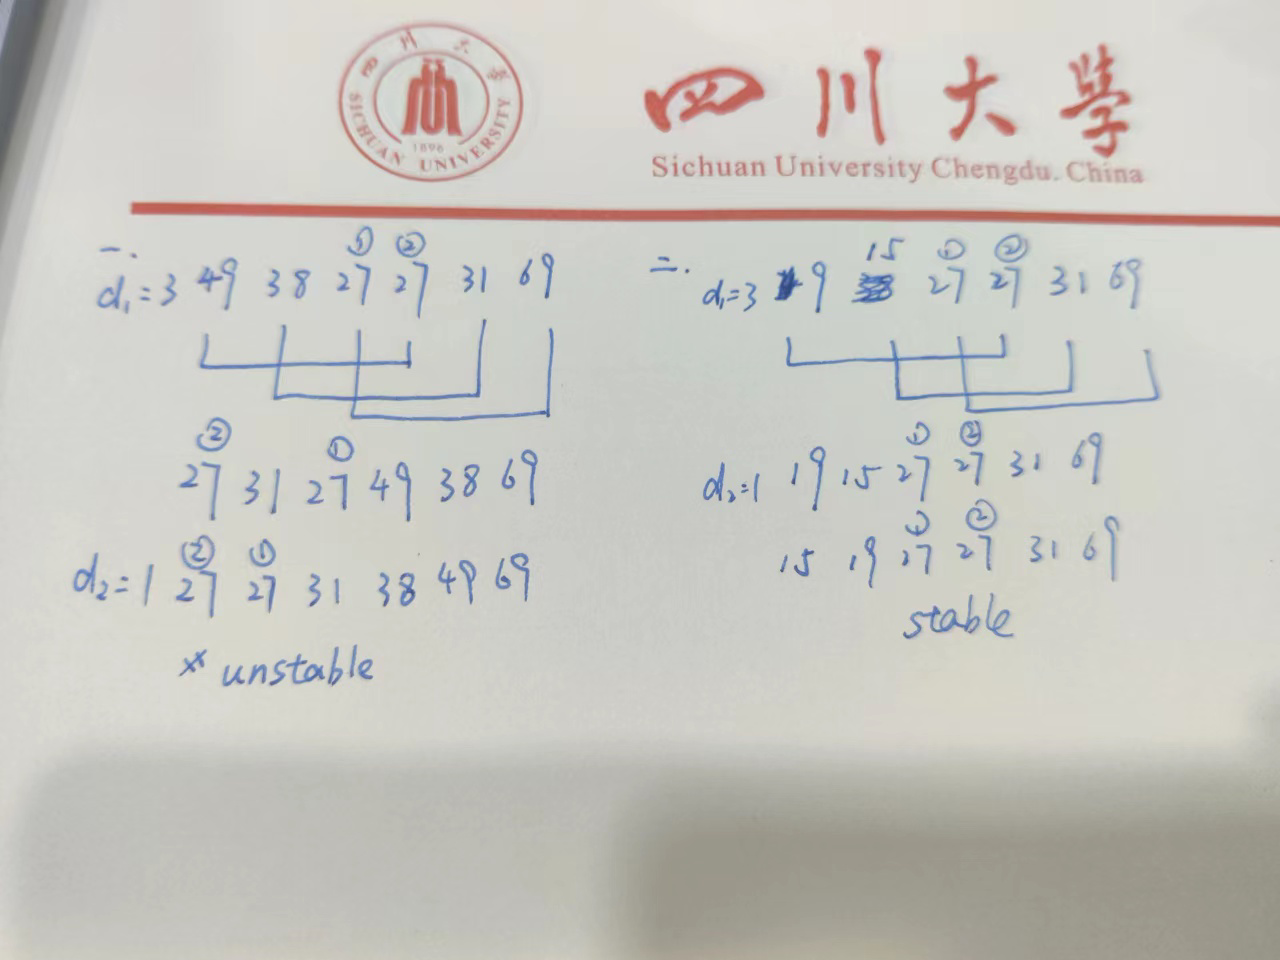 四川大學
SICHUAN UNIVERSITY
1896
四川大學
Sichuan University Chengdu. China
一.
① ②
d₁=3 49 38 27 27 31 69
② ①
27 31 27 49 38 69
② ①
d₂=1 27 27 31 38 49 69
* unstable
二.
15 ① ②
d₁=3 19 27 27 31 69
① ②
d₂=1 19 15 27 27 31 69
① ②
15 19 27 27 31 69
stable